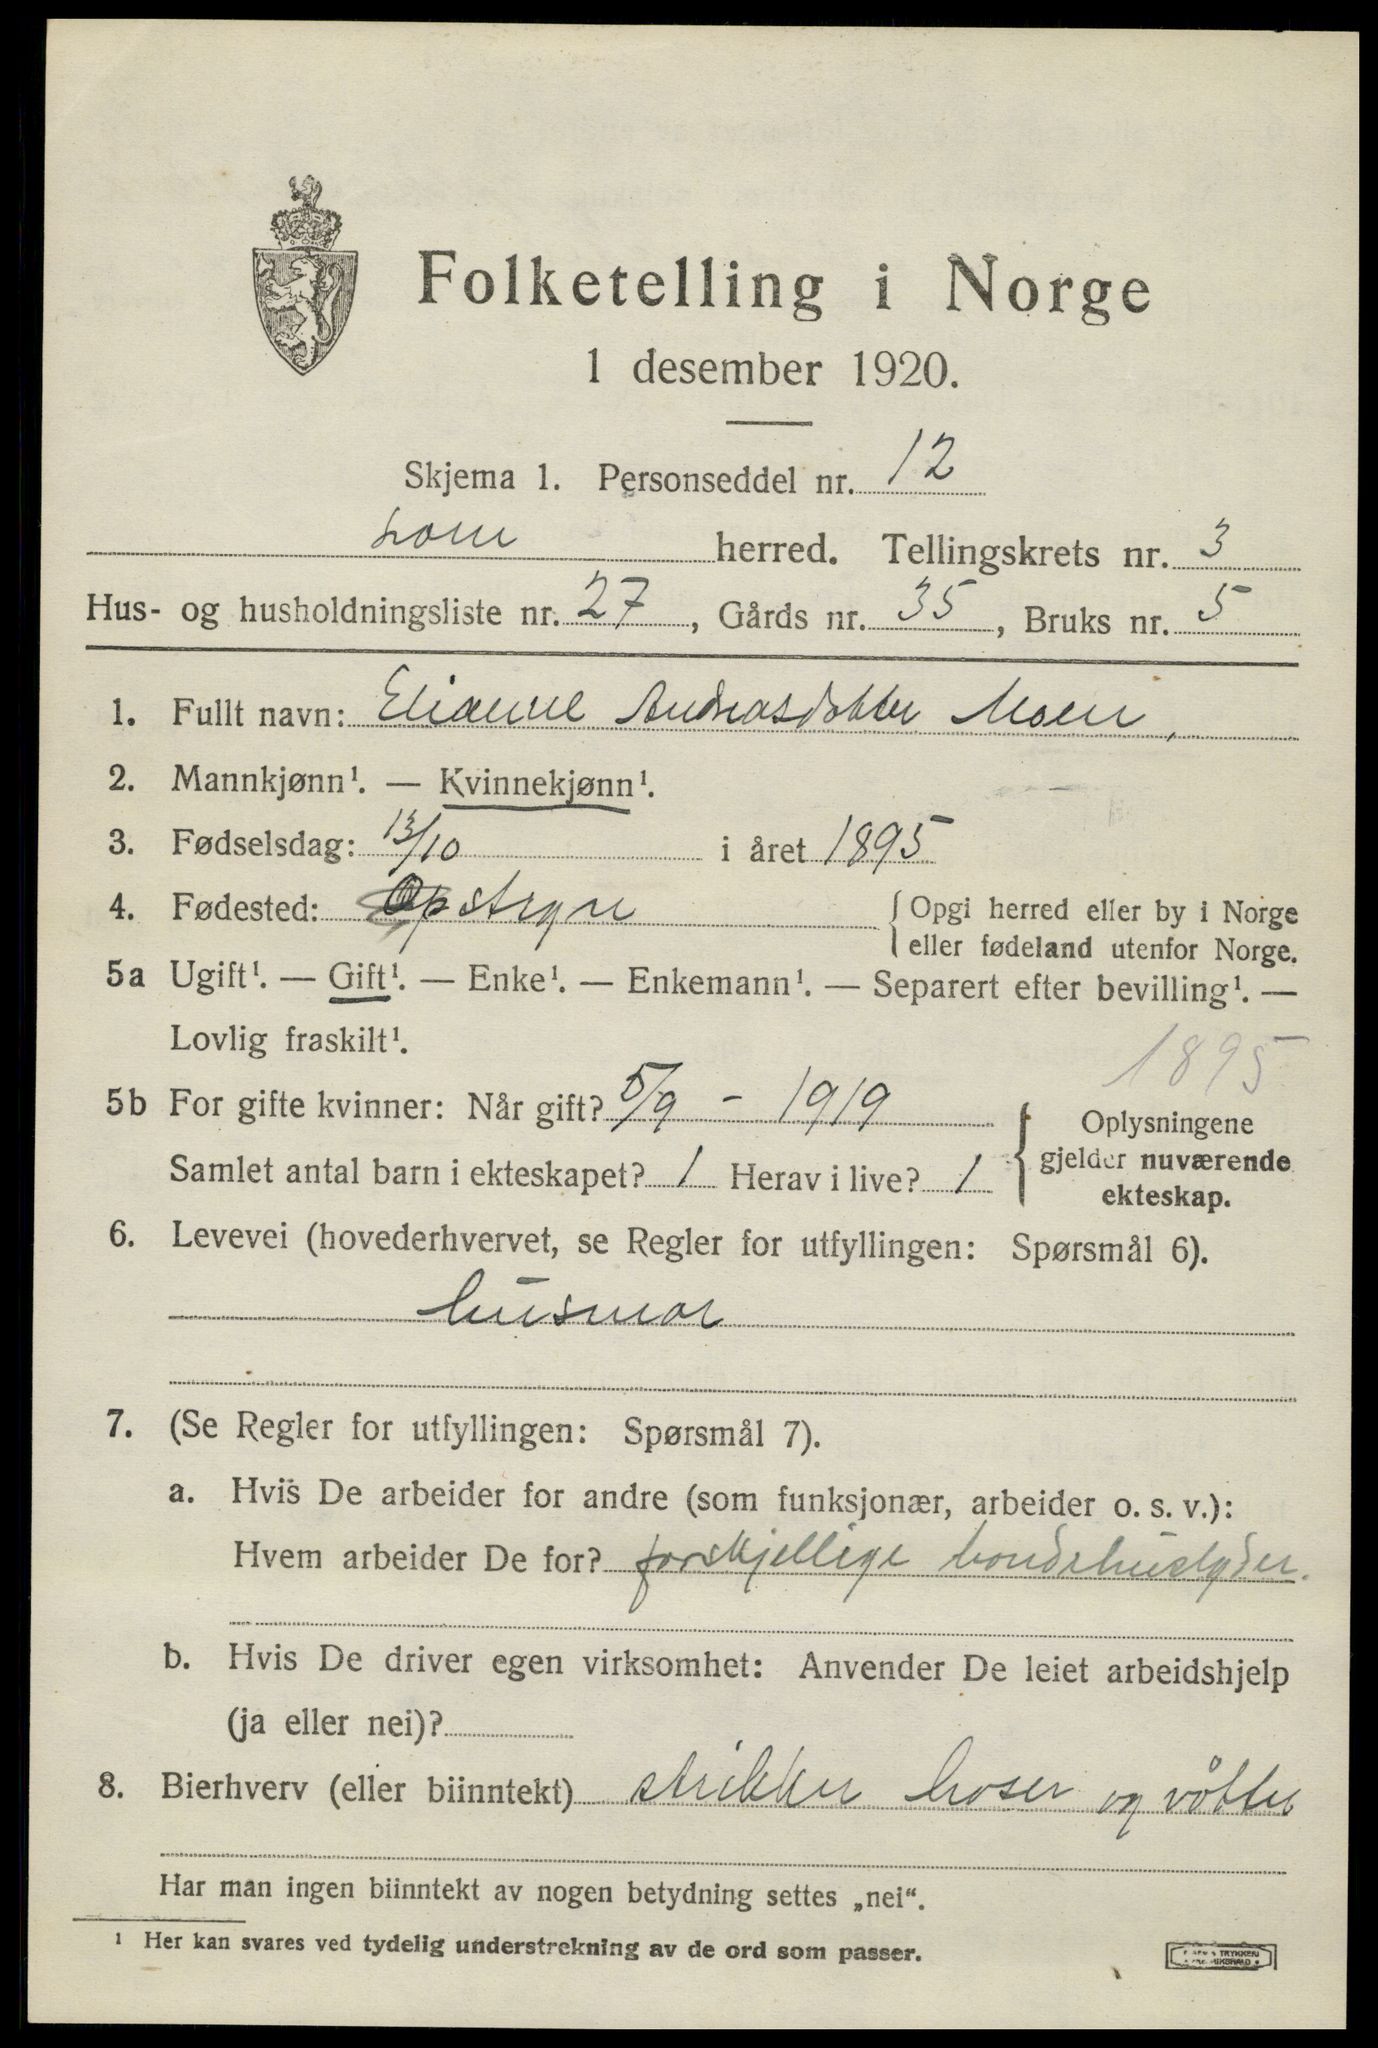 Folketelling i Norge
1 desember 1920.
Skjema 1. Personseddel nr. 12
Lom herred. Tellingskrets nr. 3
Hus- og husholdningsliste nr. 27, Gårds nr. 35, Bruks nr. 5
1. Fullt navn: Andreasdotter Moen,
2. Mannkjønn¹. — Kvinnekjønn¹.
3. Fødselsdag: 13/10 i året 1895
4. Fødested: Opstryn {Opgi herred eller by i Norge
eller fødeland utenfor Norge.
5a Ugift¹. — Gift¹. — Enke¹. — Enkemann¹. — Separert efter bevilling¹. —
Lovlig fraskilt¹.
1895
5b For gifte kvinner: Når gift? 5/9 - 1919 { Oplysningene
gjelder nuværende
Samlet antal barn i ekteskapet? 1 Herav i live? 1
ekteskap.
6. Levevei (hovederhvervet, se Regler for utfyllingen: Spørsmål 6).
husmor
7. (Se Regler for utfyllingen: Spørsmål 7).
a. Hvis De arbeider for andre (som funksjonær, arbeider o. s. v.):
Hvem arbeider De for? forskjellige bondehuslyder.
b. Hvis De driver egen virksomhet: Anvender De leiet arbeidshjelp
(ja eller nei)?
8. Bierhverv (eller biinntekt) strikker hoser og vötter
Har man ingen biinntekt av nogen betydning settes „nei“.
¹ Her kan svares ved tydelig understrekning av de ord som passer.